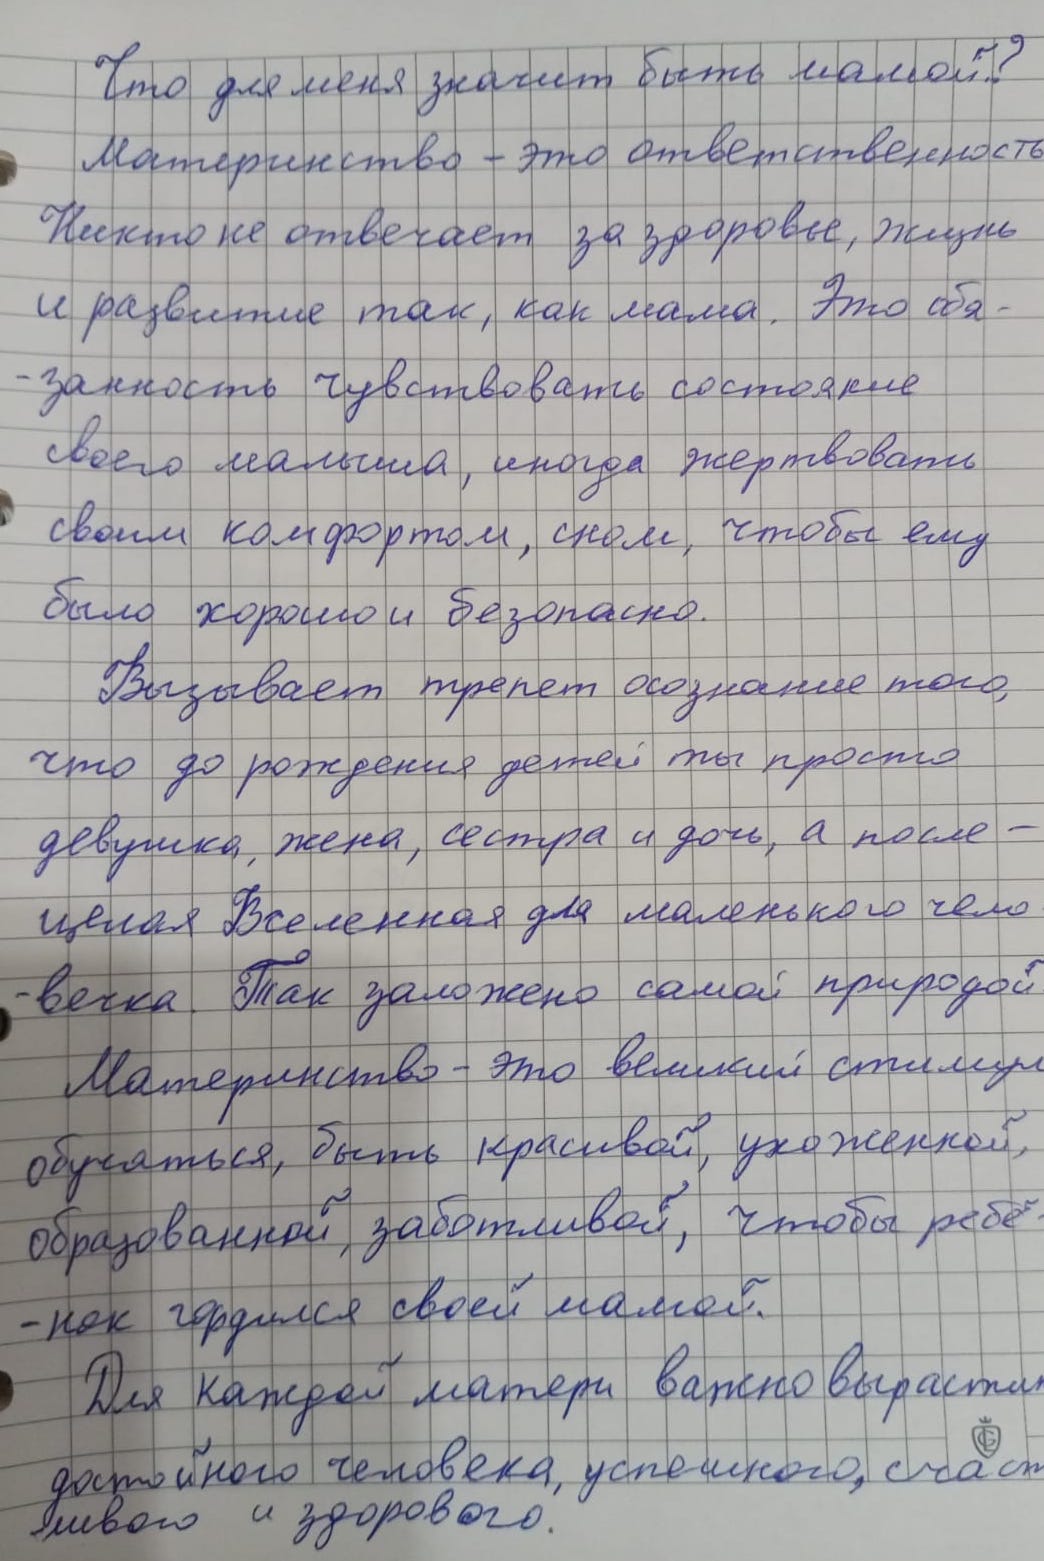 Что для меня значит быть мамой?
Материнство – это ответственность
Никто не отвечает за здоровье, жизнь
и развитие так, как мама. Это обя-
-занность чувствовать состояние
своего малыша, иногда жертвовать
своим комфортом, сном, чтобы ему
было хорошо и безопасно.
Вызывает трепет осознание того,
что до рождения детей ты просто
девушка, жена, сестра и дочь, а после –
целая Вселенная для маленького чело
-вечка. Так заложено самой природой
Материнство – это великий стимул
обучаться, быть красивой, ухоженной,
образованной, заботливой, чтобы ребё-
-нок гордился своей мамой.
Для каждой матери важно вырастит
достойного человека, успешного, счаст
ливого и здорового.